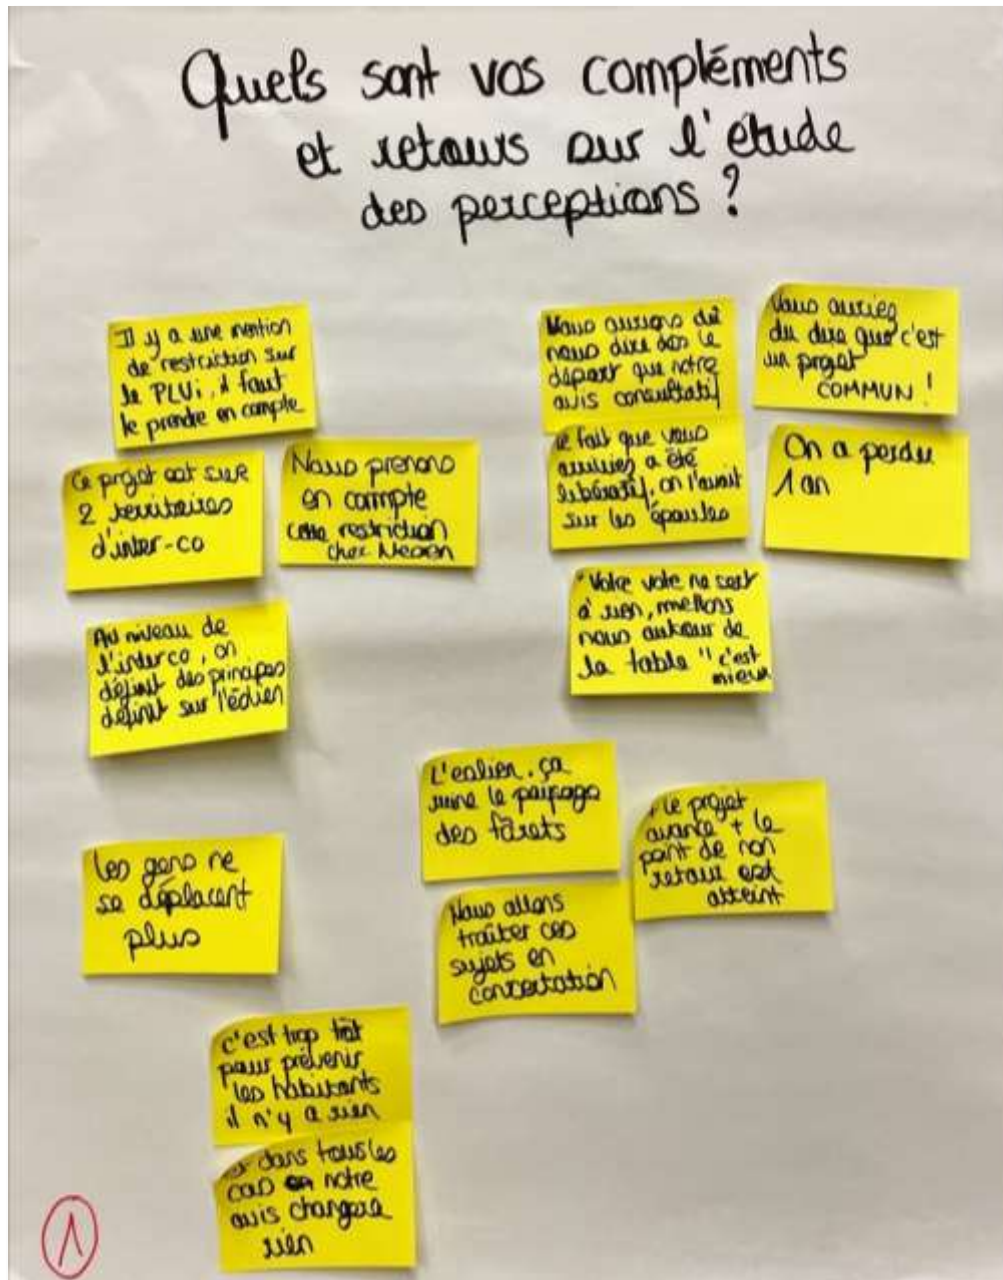 Quels sont vos compléments
et retours sur l'étude
des perceptions ?
Il y a une mention
de restriction sur
le PLUi, il faut
le prendre en compte
Ce projet est sur
2 territoires
d'inter-co
Nous prenons
en compte
cette restriction
chez Neoen
Au niveau de
l'interco, on
définit des principes
définit sur l'éolien
les gens ne
se déplacent
plus
Vous auriez dû
nous dire dès le
départ que notre
avis consultatif
Vous auriez
du dire que c'est
un projet
COMMUN !
le fait que vous
a été
libératif, on l'avait
sur les épaules
On a perdu
1 an
"Votre vote ne sert
à rien, mettons
nous autour de
la table" c'est
mieux
L'eolien, ça
ruine le paysage
des fôrets
+ le projet
avance + le
point de non
retour est
atteint
Nous allons
traiter ces
sujets en
concertation
c'est trop tôt
pour prévenir
les habitants
il n'y a rien
et dans tous les
cas notre
avis changera
rien
1